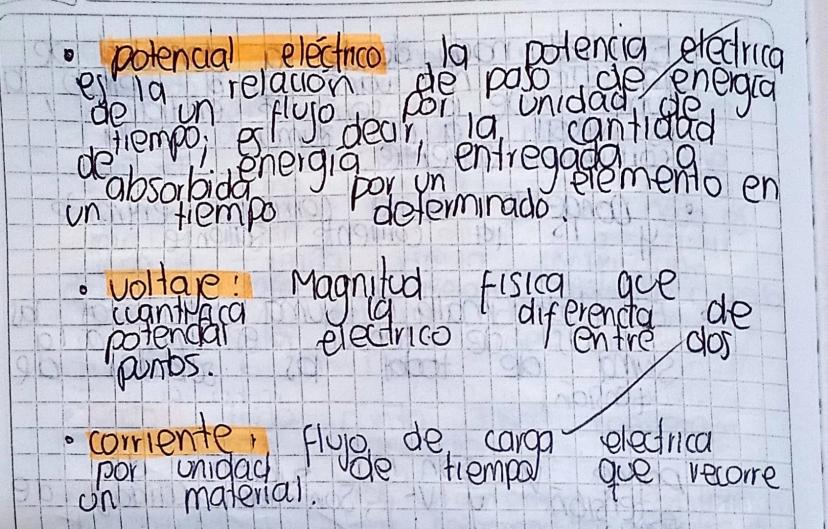 • potencial eléctrico la potencia eléctrica
es la relación de paso de energía
de un flujo por unidad de
tiempo; es decir, la cantidad
de energía entregada o
absorbida por un elemento en
un tiempo determinado.
• voltaje: Magnitud física que
cuantifica la diferencia de
potencial eléctrico entre dos
puntos.
• corriente, flujo de carga electrica
por unidad de tiempo que recorre
un material.